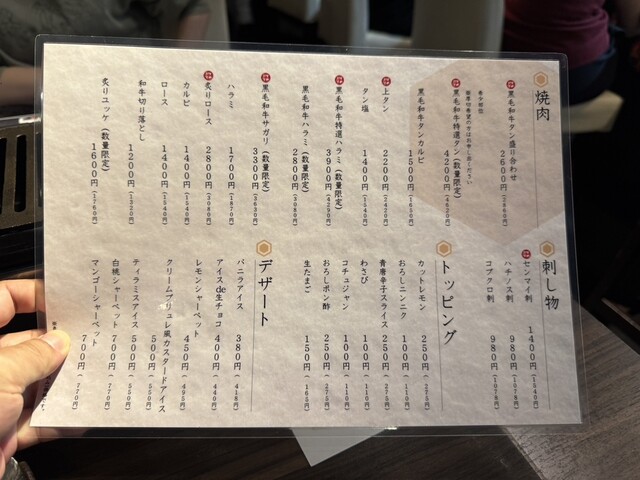 焼肉
は 黒毛和牛タン盛り合わせ 2600円(2860円)
希少部位
は 黒毛和牛特選タン(数量限定) 4200円(4620円)
黒毛和牛タンカルビ 1500円(1650円)
は 上タン 2200円(2420円)
タン塩 1400円(1540円)
は 黒毛和牛特選ハラミ(数量限定) 3900円(4290円)
黒毛和牛ハラミ(数量限定) 2800円(3080円)
は 黒毛和牛サガリ(数量限定) 3300円(3630円)
ハラミ 1700円(1870円)
は 炙りロース 2800円(3080円)
カルビ 1400円(1540円)
ロース 1400円(1540円)
和牛切り落とし 1200円(1320円)
炙りユッケ(数量限定) 1600円(1760円)
刺し物
は センマイ刺 1400円(1540円)
ハチノス刺 980円(1078円)
コブクロ刺 980円(1078円)
トッピング
カットレモン 250円(275円)
おろしニンニク 100円(110円)
青唐辛子スライス 250円(275円)
わさび 100円(110円)
コチュジャン 100円(110円)
おろしポン酢 250円(275円)
生たまご 150円(165円)
デザート
バニラアイス 380円(418円)
アイスde生チョコ 400円(440円)
レモンシャーベット 450円(495円)
クリームブリュレ風カスタードアイス 500円(550円)
ティラミスアイス 500円(550円)
白桃シャーベット 700円(770円)
マンゴーシャーベット 700円(770円)